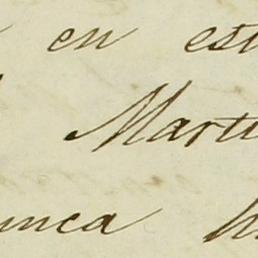 en est
Marti
unca